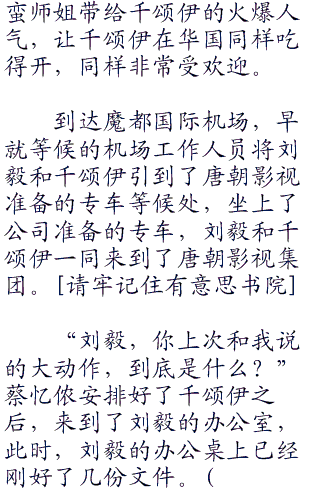 蛮师姐带给千颂伊的火爆人
气，让千颂伊在华国同样吃
得开，同样非常受欢迎。
到达魔都国际机场，早
就等候的机场工作人员将刘
毅和千颂伊引到了唐朝影视
准备的专车等候处，坐上了
公司准备的专车，刘毅和千
颂伊一同来到了唐朝影视集
团。[请牢记住有意思书院]
“刘毅，你上次和我说
的大动作，到底是什么？”
蔡忆侬安排好了千颂伊之
后，来到了刘毅的办公室，
此时，刘毅的办公桌上已经
刚好了几份文件。(